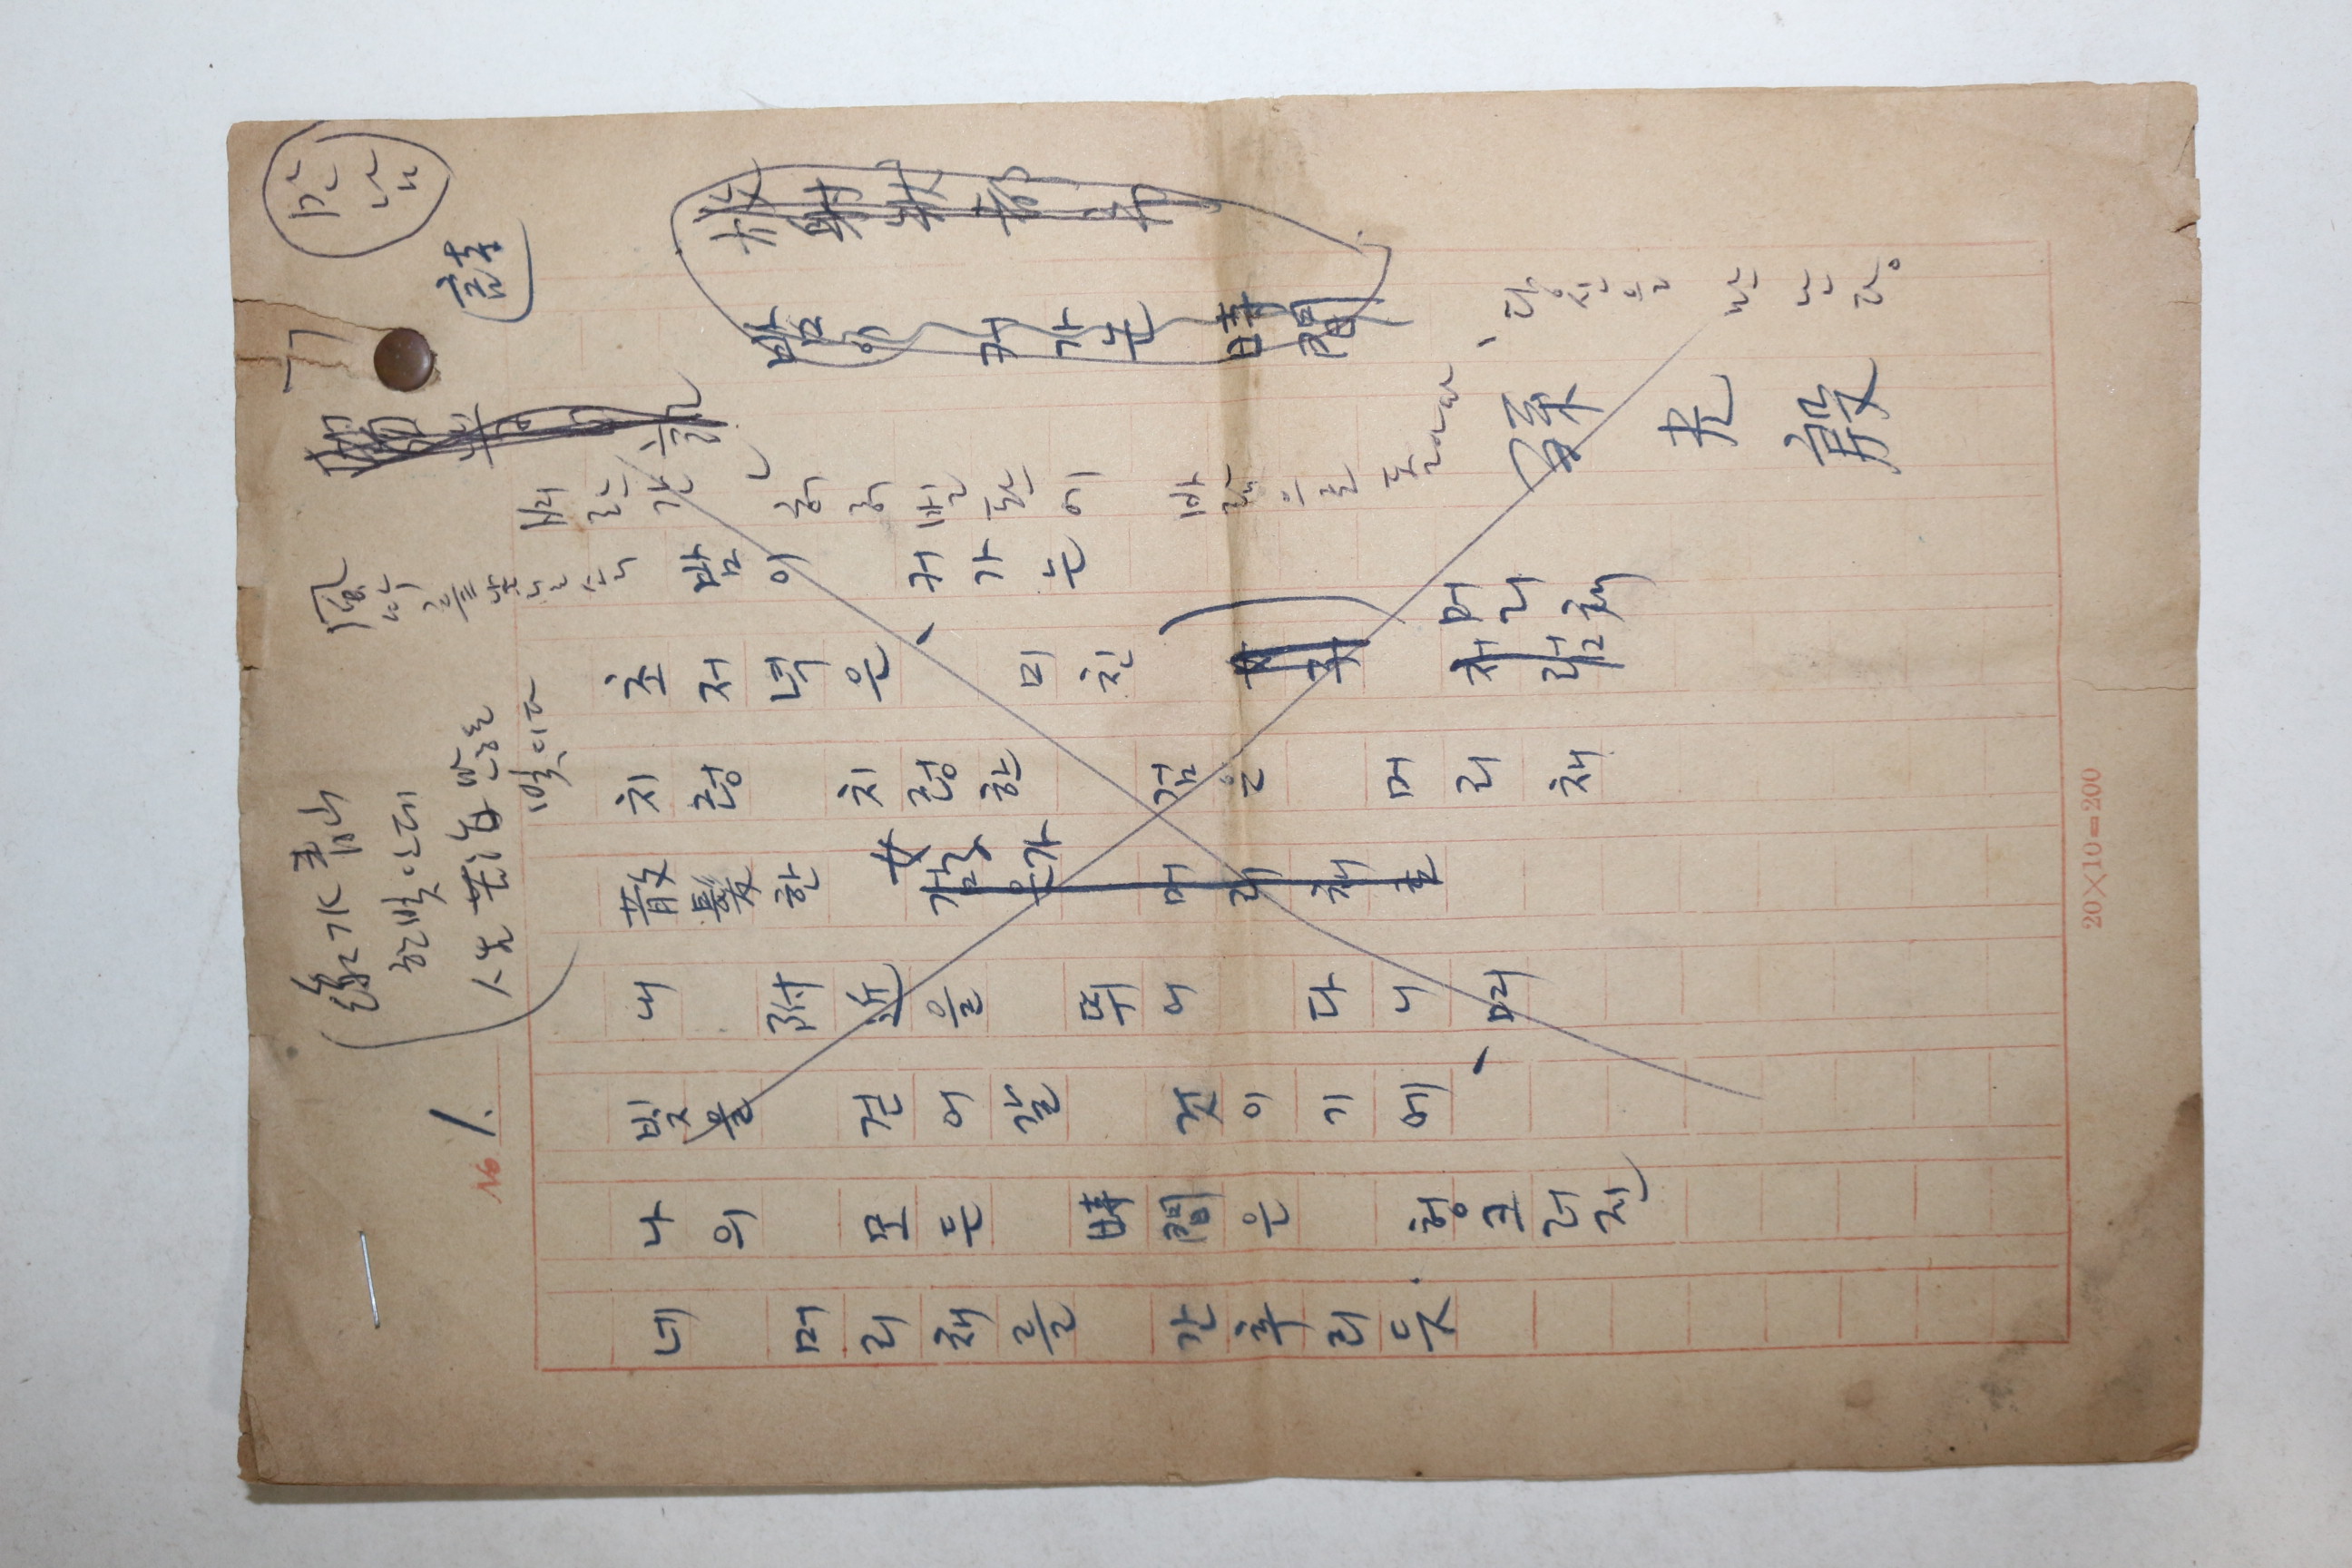 만남
詩
放射状都市
밤이 커가는 時間
당신을 만난다。
孫光殷
허허벌판에 바람으로 돌아와
밤이 커가는
초저녁은、 미친
머리채
처럼
치렁 치렁한 검은 머리채
散髮한 女子가
검은 머리채로
내 附近을 뛰어 다니며
빗물 걷어갈 것이기에、
나의 모든 時間은 헝크러진
네 머리채를 간추리듯
綠水靑山
한빛인데
人生苦海 만흔
빛이다
No 1.
20×10=200